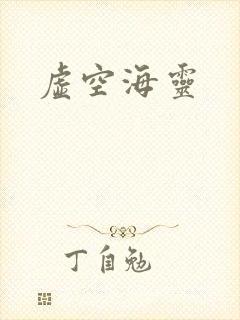 虛空海靈
丁自勉